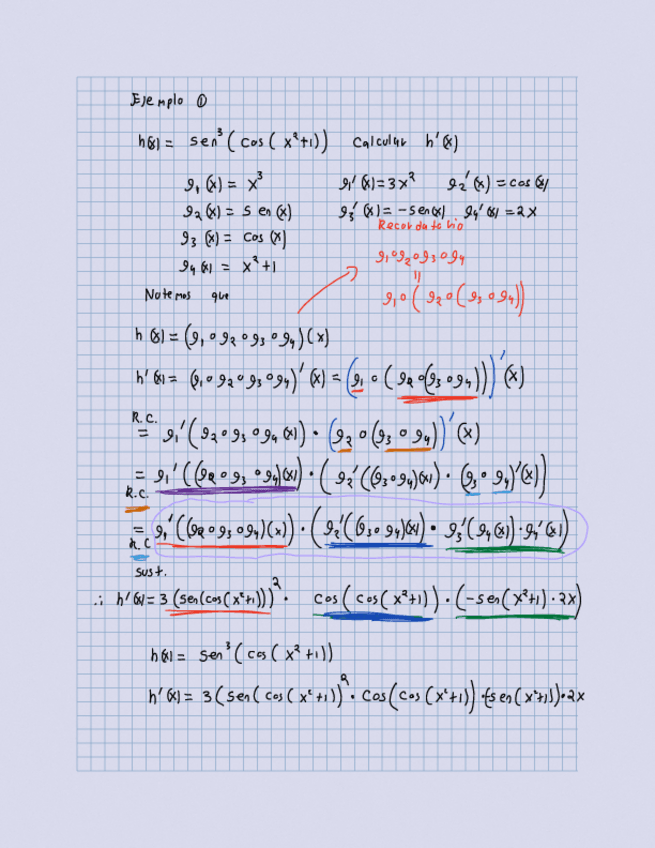 Ejemplo ①
h(x) = sen³(cos(x²+1)) Calcular h'(x)
g₁(x) = x³ g₁'(x) = 3x² g₂'(x) = cos(x)
g₂(x) = sen(x) g₃'(x) = -sen(x) g₄'(x) = 2x
Recordatorio
g₃(x) = cos(x)
g₁∘g₂∘g₃∘g₄
g₄(x) = x²+1
||
Notemos que
g₁∘(g₂∘(g₃∘g₄))
h(x) = (g₁∘g₂∘g₃∘g₄)(x)
h'(x) = (g₁∘g₂∘g₃∘g₄)'(x) = (g₁∘(g₂∘(g₃∘g₄)))'(x)
R.C.
= g₁'(g₂∘g₃∘g₄(x)) · (g₂∘(g₃∘g₄))'(x)
= g₁'((g₂∘g₃∘g₄)(x)) · (g₂'((g₃∘g₄)(x)) · (g₃∘g₄)'(x))
R.C.
= g₁'((g₂∘g₃∘g₄)(x)) · (g₂'((g₃∘g₄)(x)) · g₃'(g₄(x)) · g₄'(x))
R.C
sust.
∴ h'(x) = 3(sen(cos(x²+1)))² · cos(cos(x²+1)) · (-sen(x²+1) · 2x)
h(x) = sen³(cos(x²+1))
h'(x) = 3(sen(cos(x²+1))² · cos(cos(x²+1)) · (-sen(x²+1)) · 2x